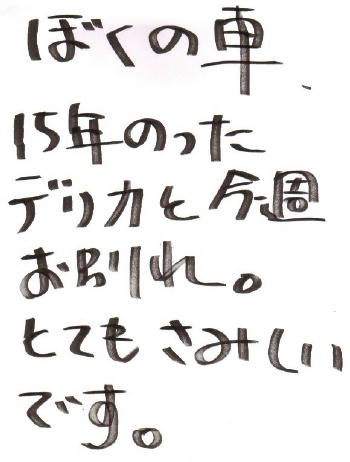 ぼくの車、
15年のった
デリカと今週
お別れ。
とてもさみしい
です。